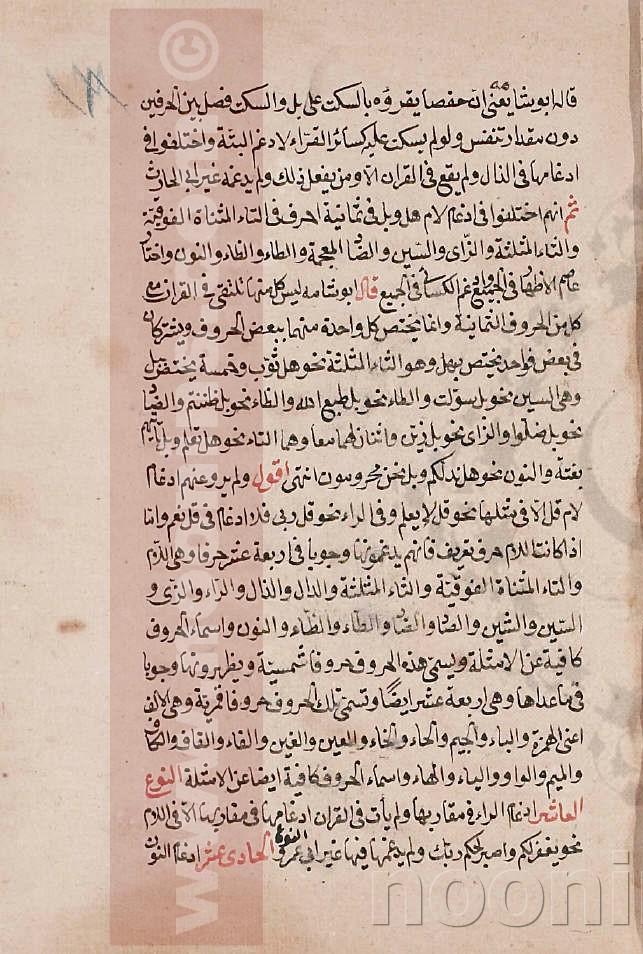 قاله ابو شامه يعنى ان حفصا يقرؤه بالسكت على بل والسكت فصل بين الحرفين
دون مقدار تنفس ولو لم يسكت عليه كسائر القراء لادغم البتة واختلفوا فى
ادغامها فى الذال ولم يقع فى القران الا ومن يفعل ذلك ولم يدغمه غير ابى الحارث
ثم انهم اختلفوا فى ادغام لام هل وبل فى ثمانية احرف فى التاء المثناة الفوقية
والثاء المثلثة والزاى والسين والضاد المعجمة والطاء والظاء والنون واختار
عاصم الاظهار فى الجميع وادغم الكسائى فى الجميع قال ابو شامه ليس كل منها تلتقى فى القران مع
كل من الحروف الثمانية وانما يختص كل واحدة منهما ببعض الحروف ويشتركان
فى بعض فواحد يختص بهل وهو الثاء المثلثة نحو هل ثوب وخمسة يختص ببل
وهى السين نحو بل سولت والطاء نحو بل طبع الله والظاء نحو بل ظننتم والضاد
نحو بل ضلوا والزاى نحو بل زين واثنان لهما معا وهما التاء نحو هل تعلم وبل تأتيهم
بغتة والنون نحو هل ندلكم وبل نحن محرومون انتهى اقول ولم يرو عنهم ادغام
لام قل الا فى مثلها نحو قل لا يعلم وفى الراء نحو قل ربى فلا ادغام فى قل نعم واما
اذا كانت اللام حرف تعريف فانهم يدغمونها وجوبا فى اربعة عشر حرفا وهى اللام
والتاء المثناة الفوقية والثاء المثلثة والدال والذال والراء والزى و
السين والشين والصاد والضاد والطاء والظاء والنون واسماء الحروف
كافية عن الامثلة ويسمى هذه الحروف حروفا شمسية ويظهرونها وجوبا
فى ما عداها وهى اربعة عشر ايضا وتسمى تلك الحروف حروفا قمرية وهى الالف
اعنى الهمزة والباء والجيم والحاء والخاء والعين والغين والفاء والقاف والكاف
والميم والواو والياء والهاء واسماء الحروف كافية ايضا عن الامثلة النوع
العاشر ادغام الراء فى مقاربها ولم يأت فى القران ادغامها فى مقاربها الا فى اللام
نحو يغفر لكم واصبر لحكم ربك ولم يدغمها فيها غير ابى عمرو النوع الحادى عشر ادغام النون
www.noonin
©
nooni